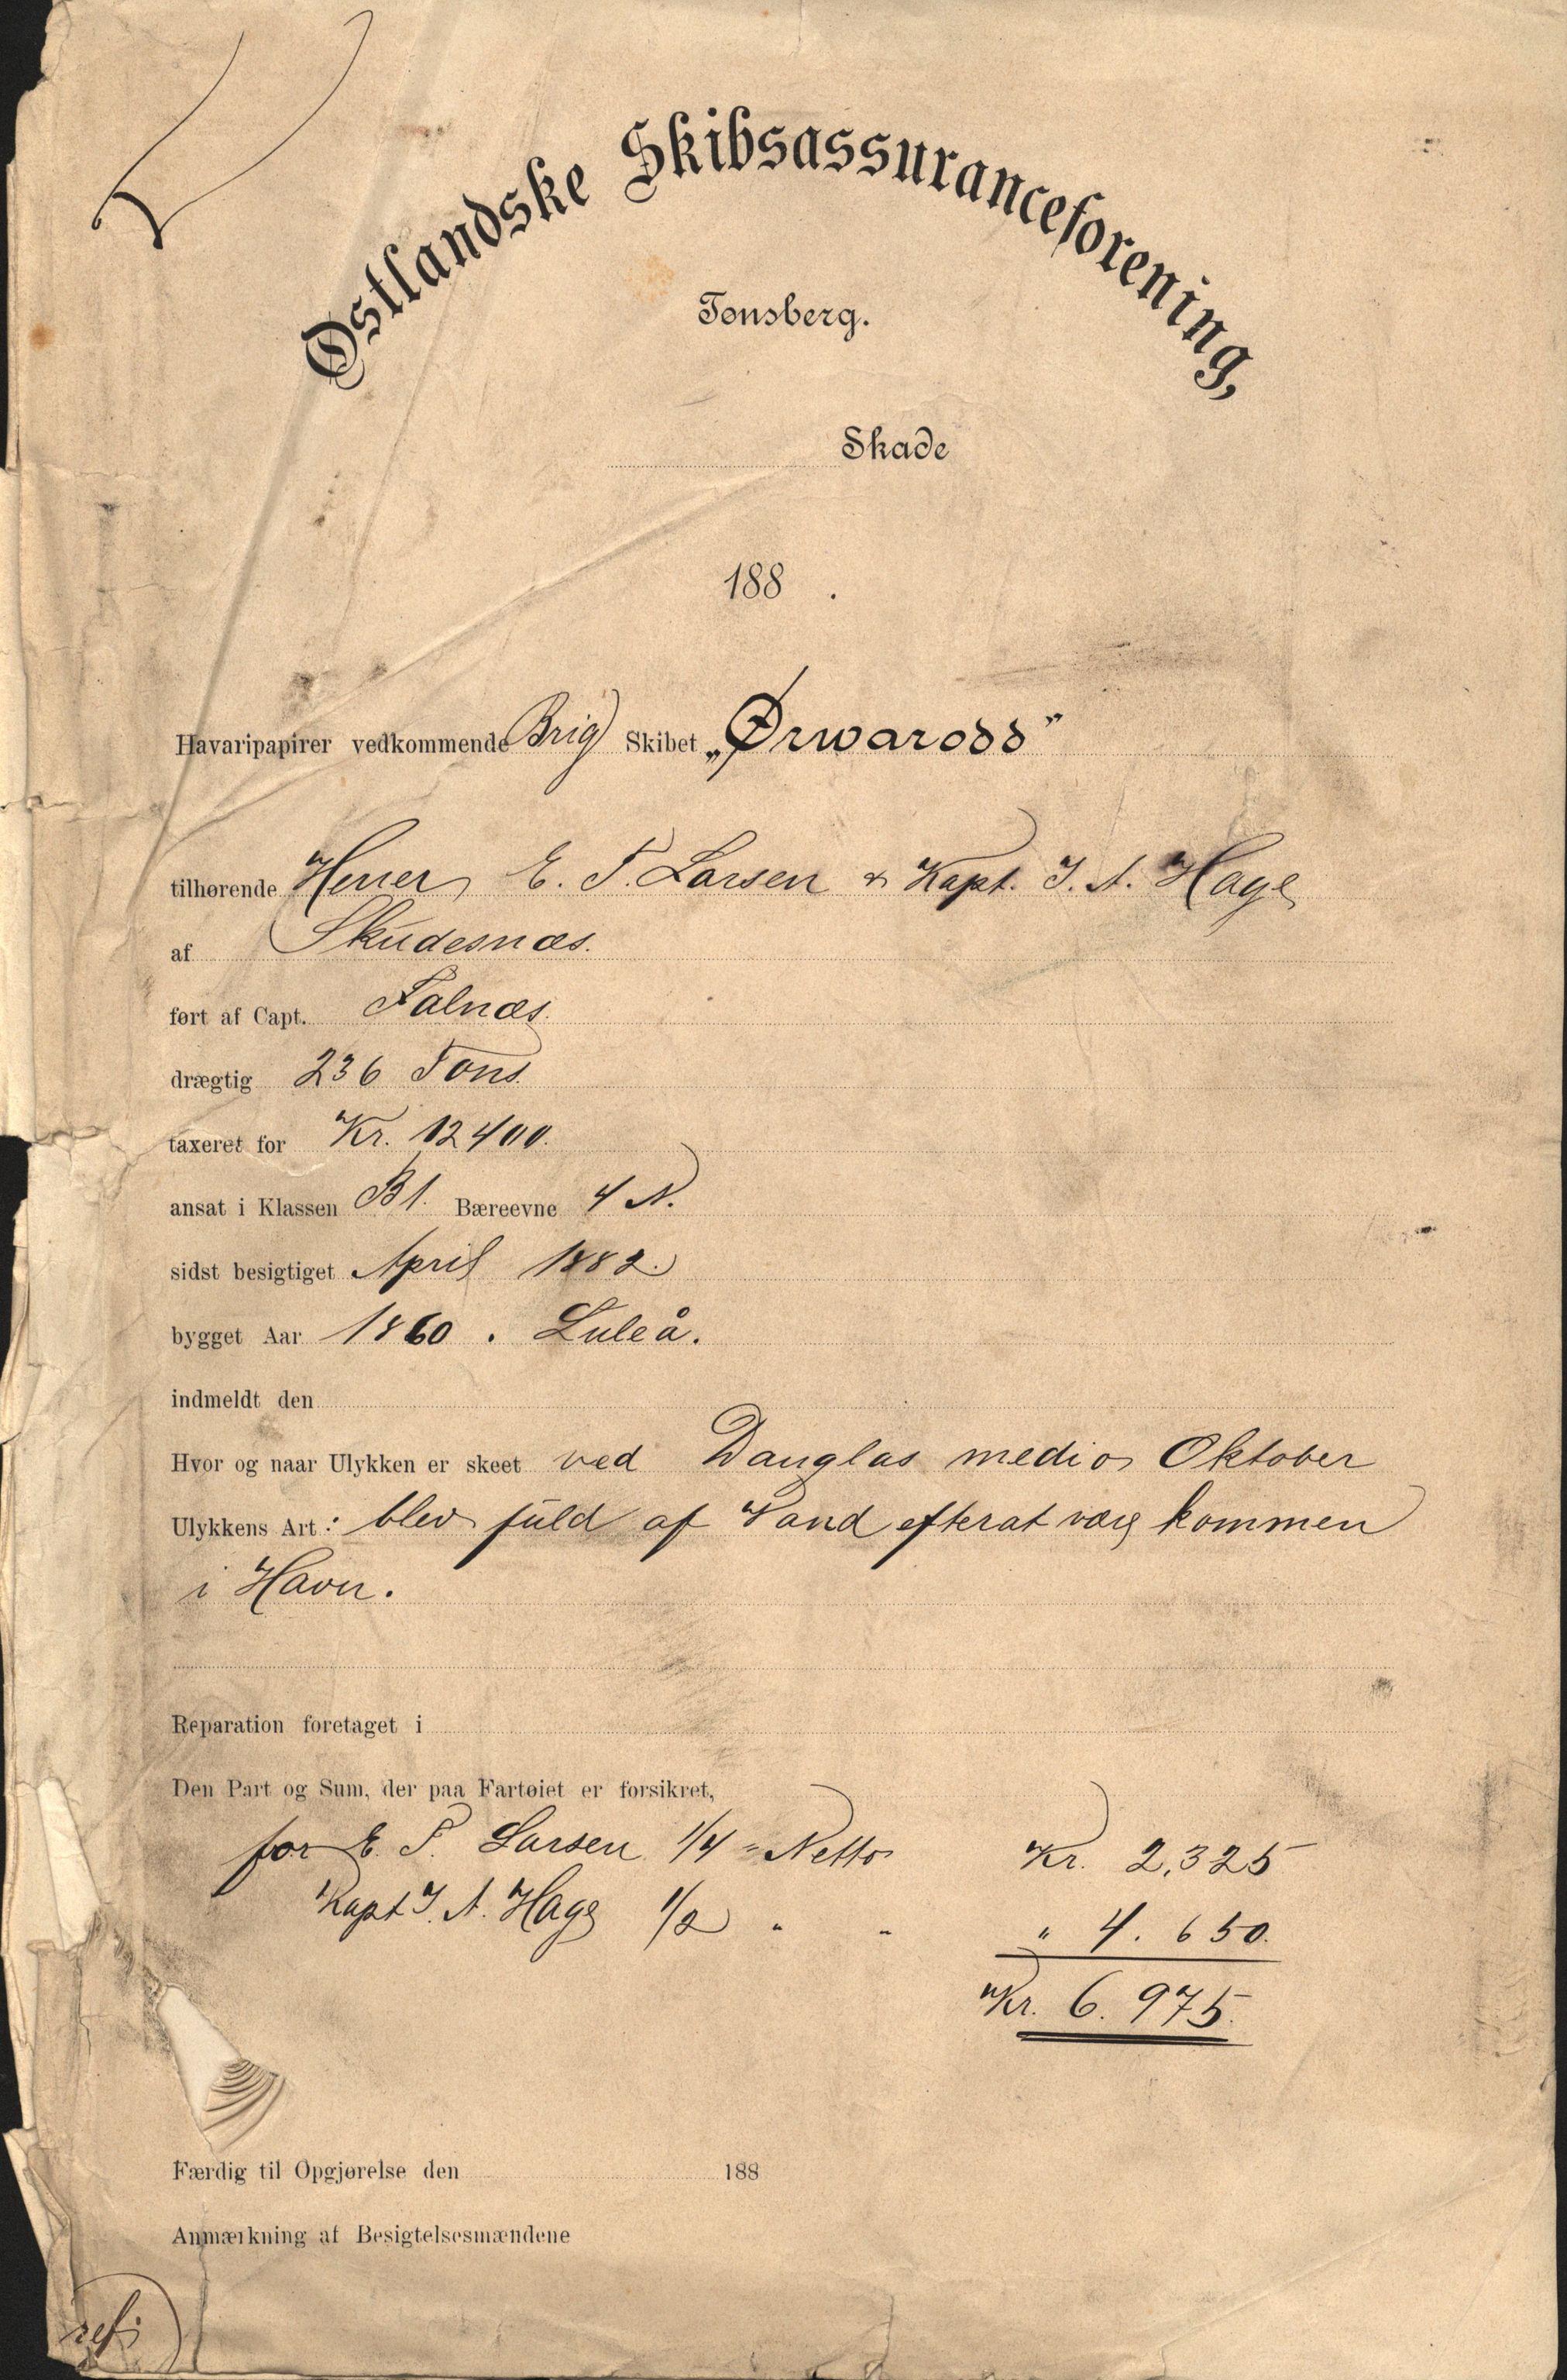 Østlandske Skibsassuranceforening,
Tønsberg.
Skade
188 .
Havaripapirer vedkommende Brig Skibet „Ørwarodd”
tilhørende Herrer E. T. Larsen & Kapt. J. A. Hage
af Skudesnæs.
ført af Capt. Falnæs.
drægtig 236 Tons
taxeret for Kr. 12400.
ansat i Klassen B1. Bæreevne 4 N.
sidst besigtiget April 1882.
bygget Aar 1860 . Luleå.
indmeldt den
Hvor og naar Ulykken er skeet ved Dauglas medio Oktober
Ulykkens Art : blev fuld af Vand efterat være kommen
i Havn.
Reparation foretaget i
Den Part og Sum, der paa Fartøiet er forsikret,
for E. T. Larsen 1/4 = Netto Kr. 2,325
Kapt J. A. Hage 1/2 " " " 4.650.
Kr. 6.975.
Færdig til Opgjørelse den 188
Anmærkning af Besigtelsesmændene